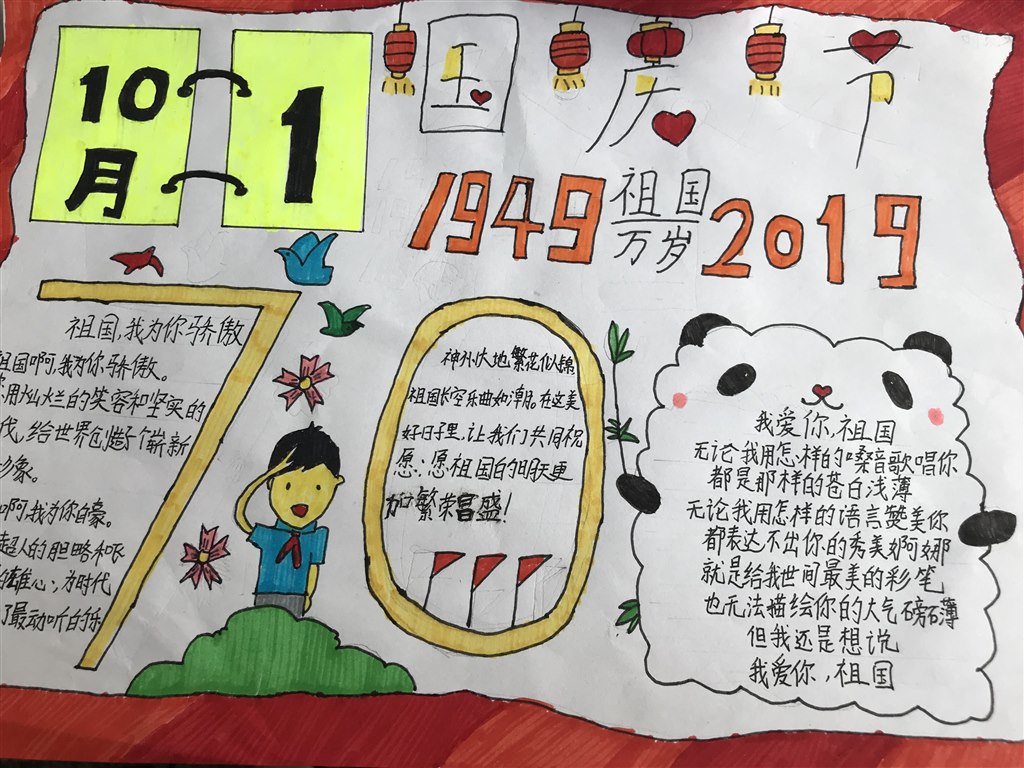 10月
1
国庆节
1949 祖国万岁 2019
70
祖国,我为你骄傲
祖国啊,我为你骄傲。
用灿烂的笑容和坚实的
代,给世界创造了个崭新
形象。
啊,我为你自豪。
超人的胆略和
的雄心;为时代
了最动听的乐
神州大地繁花似锦
祖国长空乐曲如潮,在这美
好日子里,让我们共同祝
愿:愿祖国的明天更
加繁荣昌盛!
我爱你,祖国
无论我用怎样的嗓音歌唱你
都是那样的苍白浅薄
无论我用怎样的语言赞美你
都表达不出你的秀美婀娜
就是给我世间最美的彩笔
也无法描绘你的大气磅礴
但我还是想说
我爱你,祖国